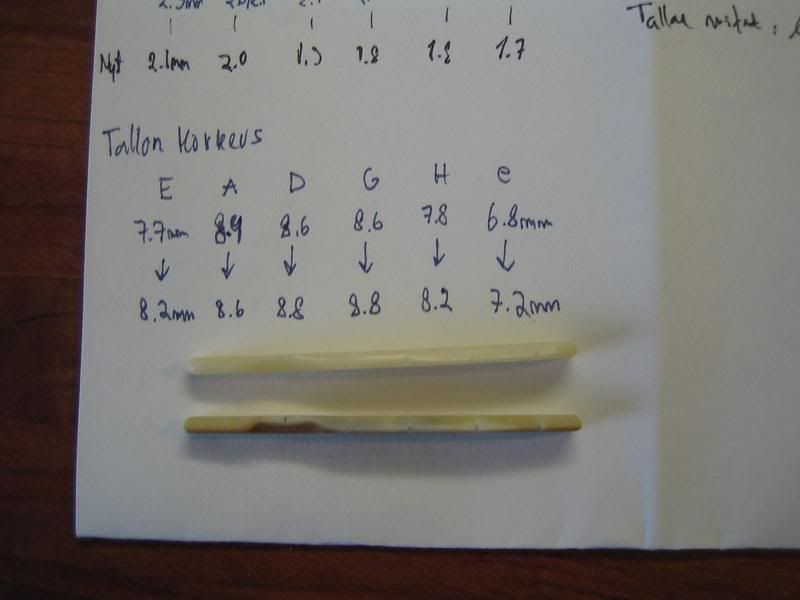 Nyt 2.1mm 2.0 1.9 1.8 1.8 1.7
Tallan mitat :
Tallon korkeus
E A D G H e
7.7mm 8.6 8.6 7.8 6.8mm
↓ ↓ ↓ ↓ ↓ ↓
8.2mm 8.6 8.8 8.8 8.2 7.2mm